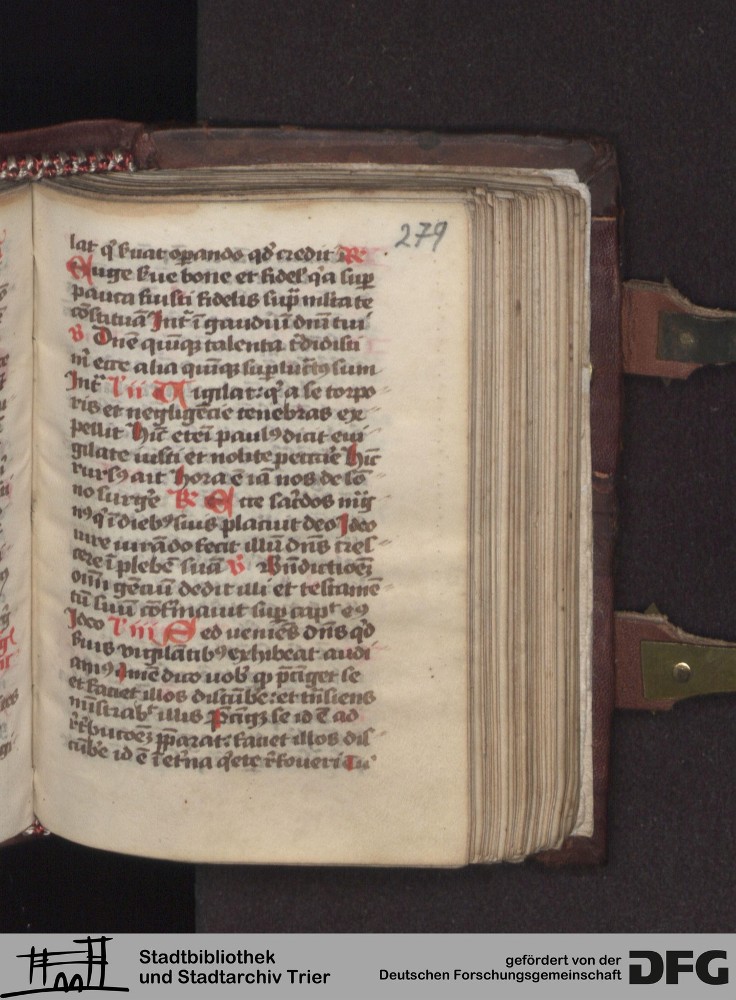 279
lat q̇ ẜuat oꝑando qd̓ credit ℟
Euge ẜue bone et fidel' q̇a suꝑ
pauca fuisti fidelis sup̄ m̄lta te
cōstituā Int̄ ī gaudiū dn̄i tui
v Dn̄e quinq; talenta t̄didisti
m̄ ecce alia quinq; suꝑlucrat9 sum
Int̄ vii Vigilat: q̇ a se torpo
ris et negligēcie tenebras ex
pellit hīc eteī paul9 dicit eui
gilate iusti et nolite peccaꝛe hīc
rurs9 ait hora ē iā nos de sō
no surgꝰe ℟ Ecce sac̄dos mag
n9 q̇ ī dieb9 suis placuit deo Ideo
iure iurādo fecit illū dn̄s cres
cere ī plebē suā v Bn̄dictionē
oīm gēciū dedit illi et testamē
tū suū cōfirmauit suꝑ caput e9
Ideo viii Sed ueniēs dn̄s qd̓
ẜuis vigilātib9 exhibeat audi
am9 Amē dico uob̄ qꝫ p̄cīget se
et faciet illos discūbe: et trāsiens
mīstrab̄t illis Precīgꝫ se id ē ad
r̄tbucōeꝫ p̄parat: faciet illos dis
cūbe id ē ī et̄na q̇ete refoueri Tu
Stadtbibliothek
und Stadtarchiv Trier
gefördert von der
Deutschen Forschungsgemeinschaft
DFG